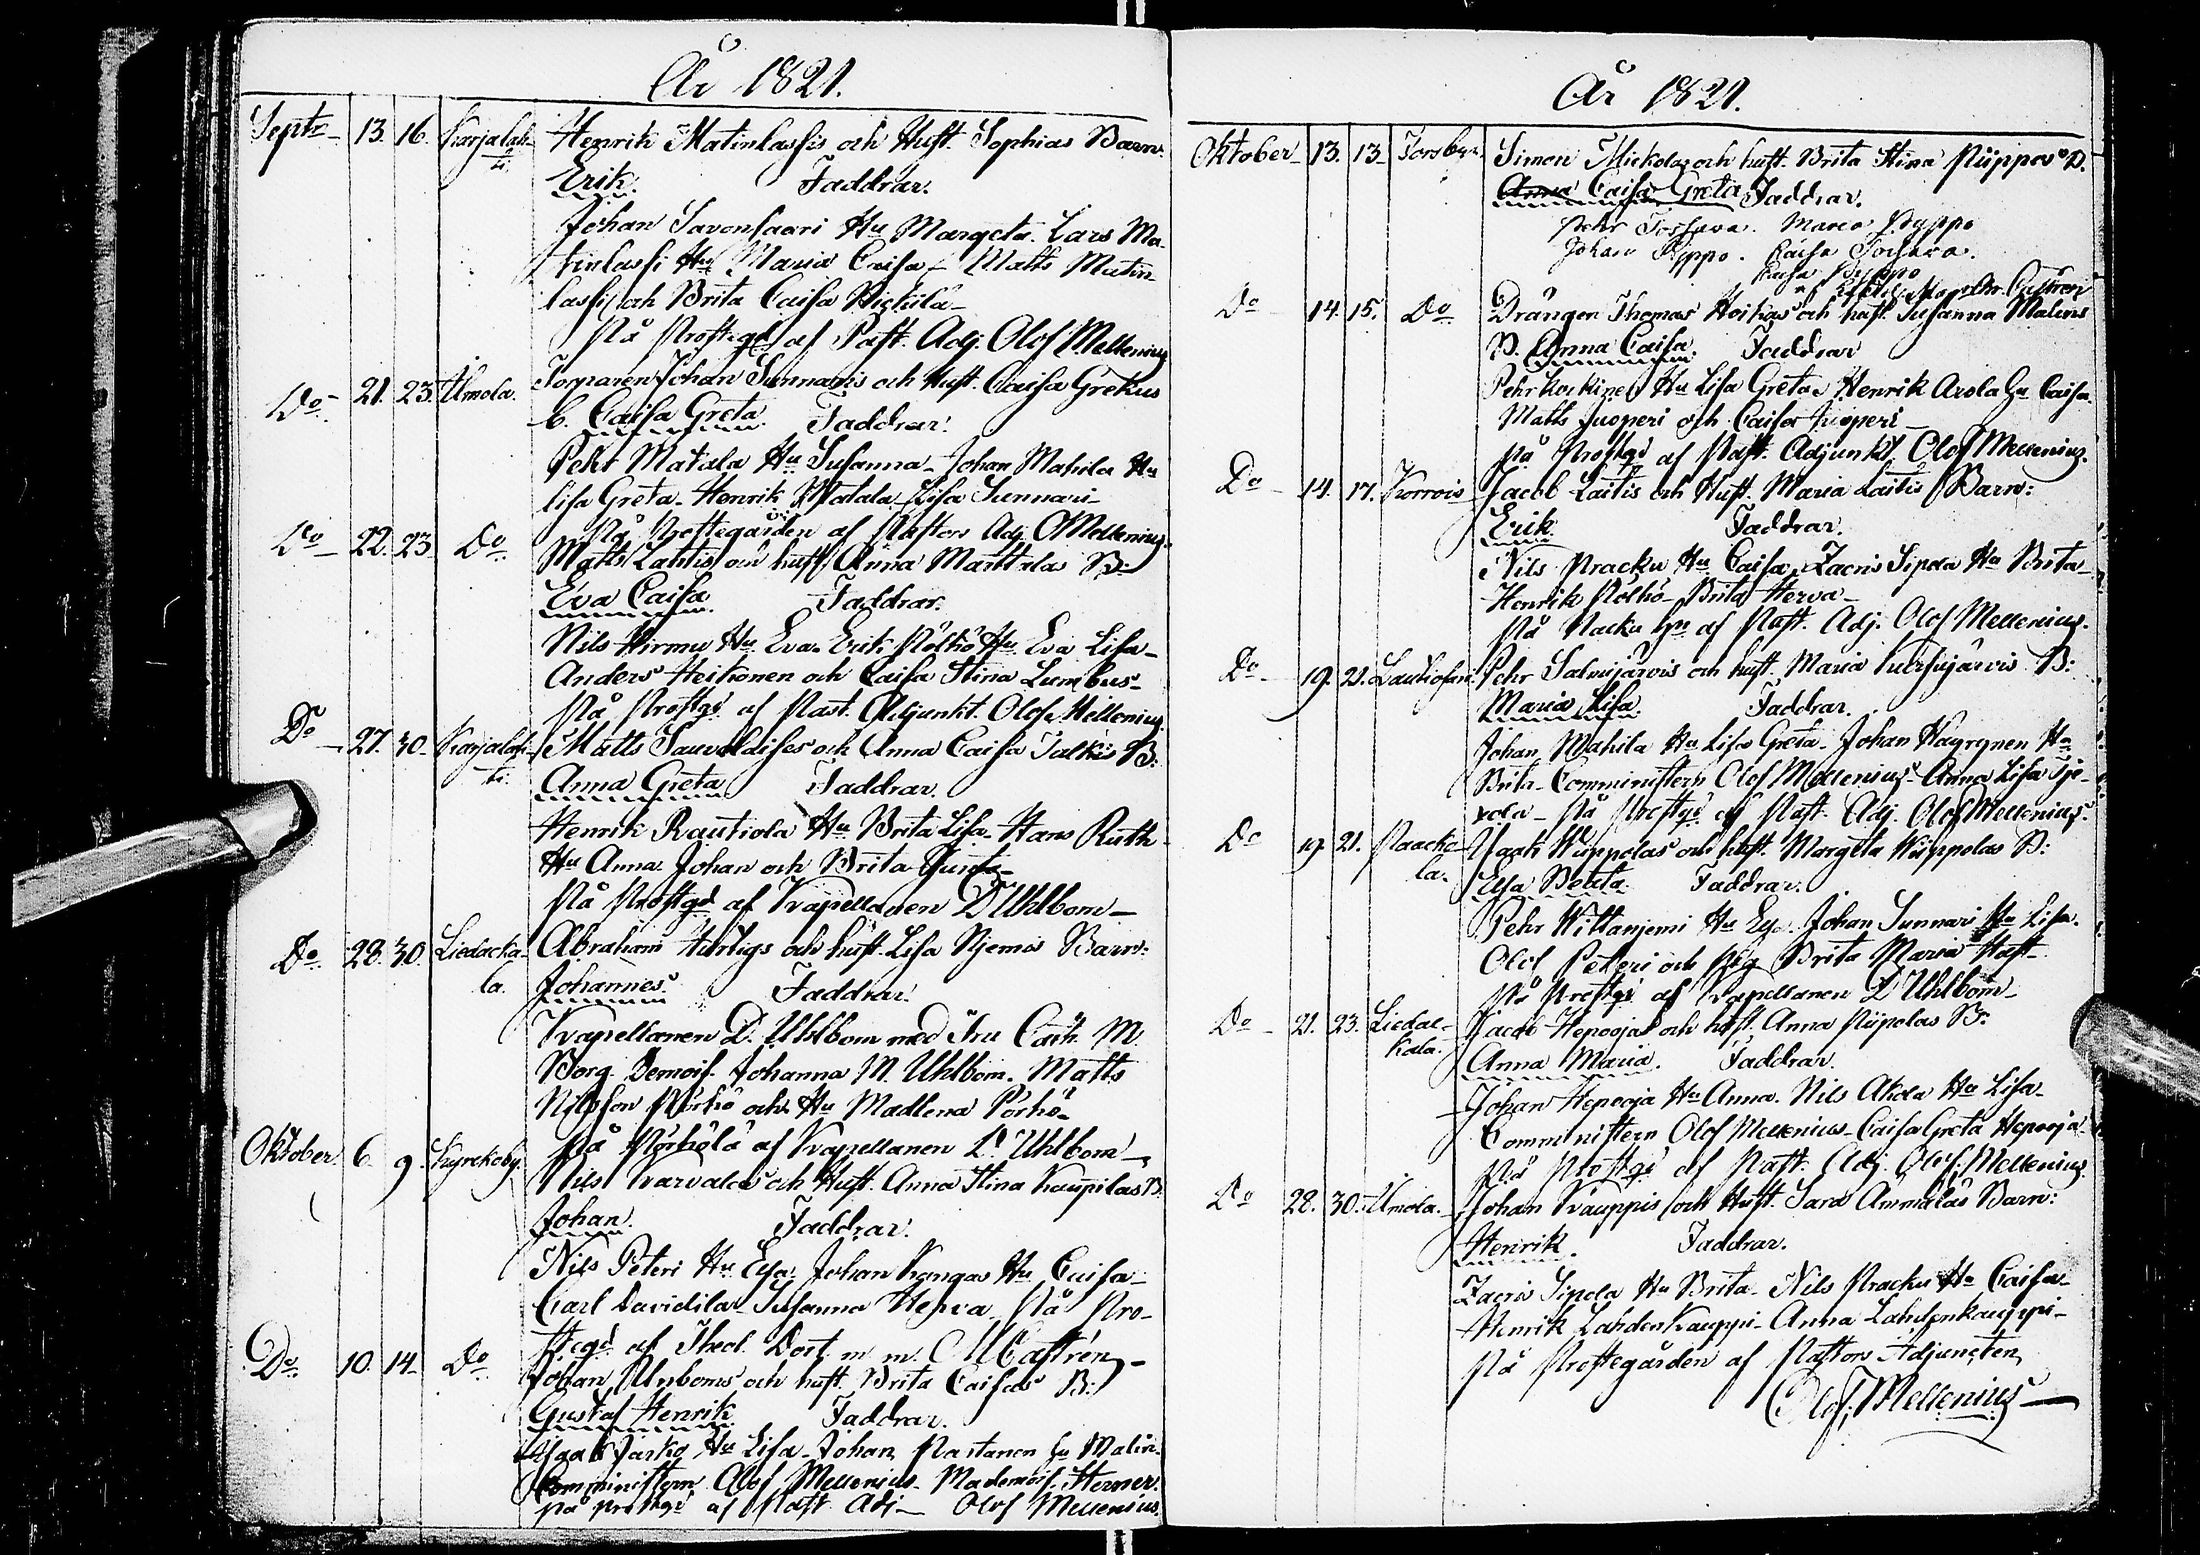 År 1821.
Septr 13. 16. Karjalah- Henrik Matinlassis och Hust. Sophias Barn:
ti. Erik. Faddrar.
Johan Savonsaari Hu Margeta. Lars Ma-
tinlassi Hu Maria Caisa – Matts Matin-
lassi och Brita Caisa
På Prostgd af Past. Adj. Olof Mellenius
Do 21. 23. Umola. Torparen Johan Sunnaris och Hust. Caisa Gretas
b. Caisa Greta. Faddrar.
Pehr Matala Hu Susanna – Johan Mahila Hu
Lisa Greta – Henrik Matala – Lisa Sunnari –
På Prostegården af Pastors Adj. O Mellenius.
Do 22. 23. Do Matts Lahtis och hust. Anna Marttilas B:
Eva Caisa. Faddrar.
Nils Hirmu Hu Eva. Erik Pölhö Hu Eva Lisa –
Anders Heikonen och Caisa Stina Lumbus –
På Prostgd af Past. Adjunkt. Olof Mellenius
Do 27. 30. Karjalah- Matts och Anna Caisa Talkes B:
ti. Anna Greta Faddrar.
Henrik Rautiola Hu Brita Lisa – Hans Ruth –
Hu Anna. Johan och Brita
På Prostgd af Kapellanen D Uhlbom –
Do 28. 30. Liedacka- Abraham och hust. Lisa Niemis Barn:
la. Johannes. Faddrar.
Kapellanen D. Uhlbom med Fru Cath. M.
Borg. Demois. Johanna M. Uhlbom. Matts
Nilsson Pörhö och Hu Madlena Pörhö –
På Pörhölä af Kapellanen D. Uhlbom –
Oktober 6. 9. Kyrckoby. Nils Karvalas och Hust. Anna Stina Kaupilas B.
Johan. Faddrar.
Nils Peteri Hu Eva. Johan Kangas Hu Caisa –
Carl Davidila – Susanna Herva. På Pro-
stegd af Theol. Doct. m. m. M Castrén –
Do 10. 14. Do Johan Unboms och hust. Brita Caisas B:
Gustaf Henrik. Faddrar.
Isaac Jarko Hu Lisa – Johan Partanen Hu Malin.
Comministern Olof Mellenius. Mademois. Herner.
på Prostgd af Past. Adj – Olof Mellenius.
År 1821.
Oktober 13. 13. Forsbyn. Simon Mickolas och hust. Brita Stina Piippos D.
Anna Caisa Greta Faddrar.
Pehr Torsava. Maria Pyppo
Johan Pyppo. Caisa Torsava.
Caisa Pyppo
Do 14. 15. Do Drängen Thomas Hoikas och hust. Susanna Malins
D. Anna Caisa. Faddrar
Pehr Korkinen Hu Lisa Greta. Henrik Arola Hu Caisa.
Matts Juoperi och Caisa Juoperi –
på Prostgd af Past. Adjunkt Olof Mellenius.
Do 14. 17. Korrois Jacob Laitis och Hust. Maria Laitis Barn:
Erik Faddrar.
Nils Pracku Hu Caisa. Zacris Sipola Hu Brita –
Henrik Pölhö – Brita Herva –
På Racku hn af Past. Adj. Olof Mellenius.
Do 19. 21. Pehr Salmijärvis och hust. Maria B:
Maria Lisa. Faddrar.
Johan Mahila Hu Lisa Greta. Johan Häyrynen Hu
Brita – Comministern Olof Mellenius – Anna Lisa
På Prostgd af Past. Adj. Olof Mellenius.
Do 19. 21. Paacko- Isaak Wiippolas och hust. Margeta Wiippolas D:
la. Eva Beata. Faddrar.
Pehr Wittanjemi Hu Eva. Johan Sunnari Hu Lisa.
Olof Peteri och Pig. Brita Maria
på Prostgd af Kapellanen D Uhlbom –
Do 21. 23. Liedac- Jacob Hepoojas och hust. Anna Piipolas B:
kala. Anna Maria. Faddrar.
Johan Hepooja Hu Anna. Nils Akola Hu Lisa –
Comministern Olof Mellenius – Caisa Greta Hepooja
På Prostgd af Past. Adj. Olof Mellenius.
Do 28. 30. Umola. Johan Kauppis och Hust. Sara Ammälas Barn:
Henrik. Faddrar.
Zacris Sipola Hu Brita – Nils Pracku Hu Caisa –
Henrik Lahdenkauppi – Anna Lahdenkauppi –
På Prostegården af Pastors Adjuncten
Olof Mellenius